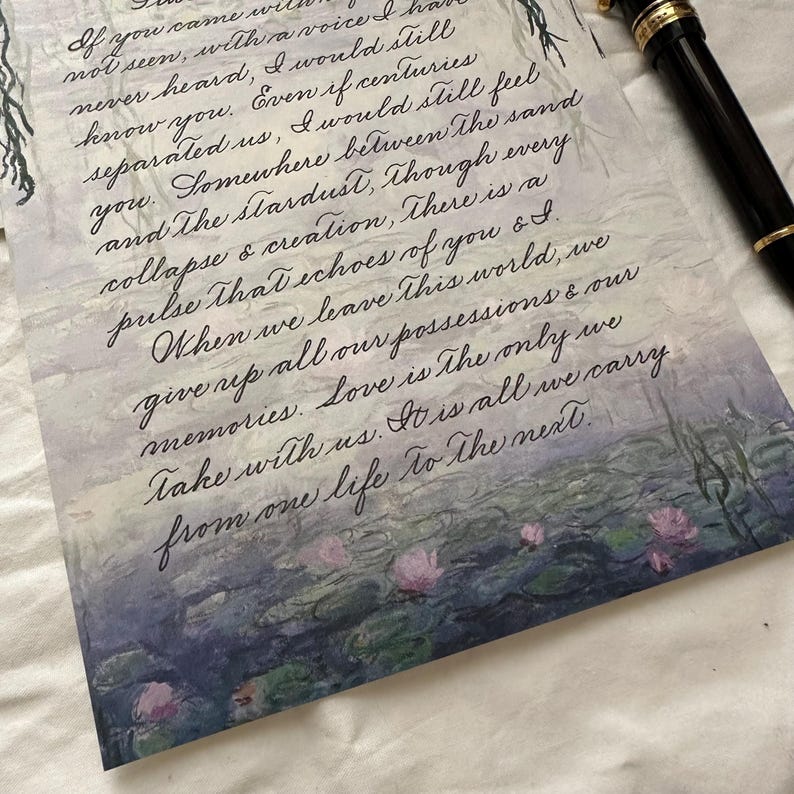 If you came with
not seen, with a voice I have
never heard, I would still
know you. Even if centuries
separated us, I would still feel
you. Somewhere between the sand
and the stardust, though every
collapse & creation, there is a
pulse that echoes of you & I.
When we leave this world, we
give up all our possessions & our
memories. Love is the only we
take with us. It is all we carry
from one life to the next.